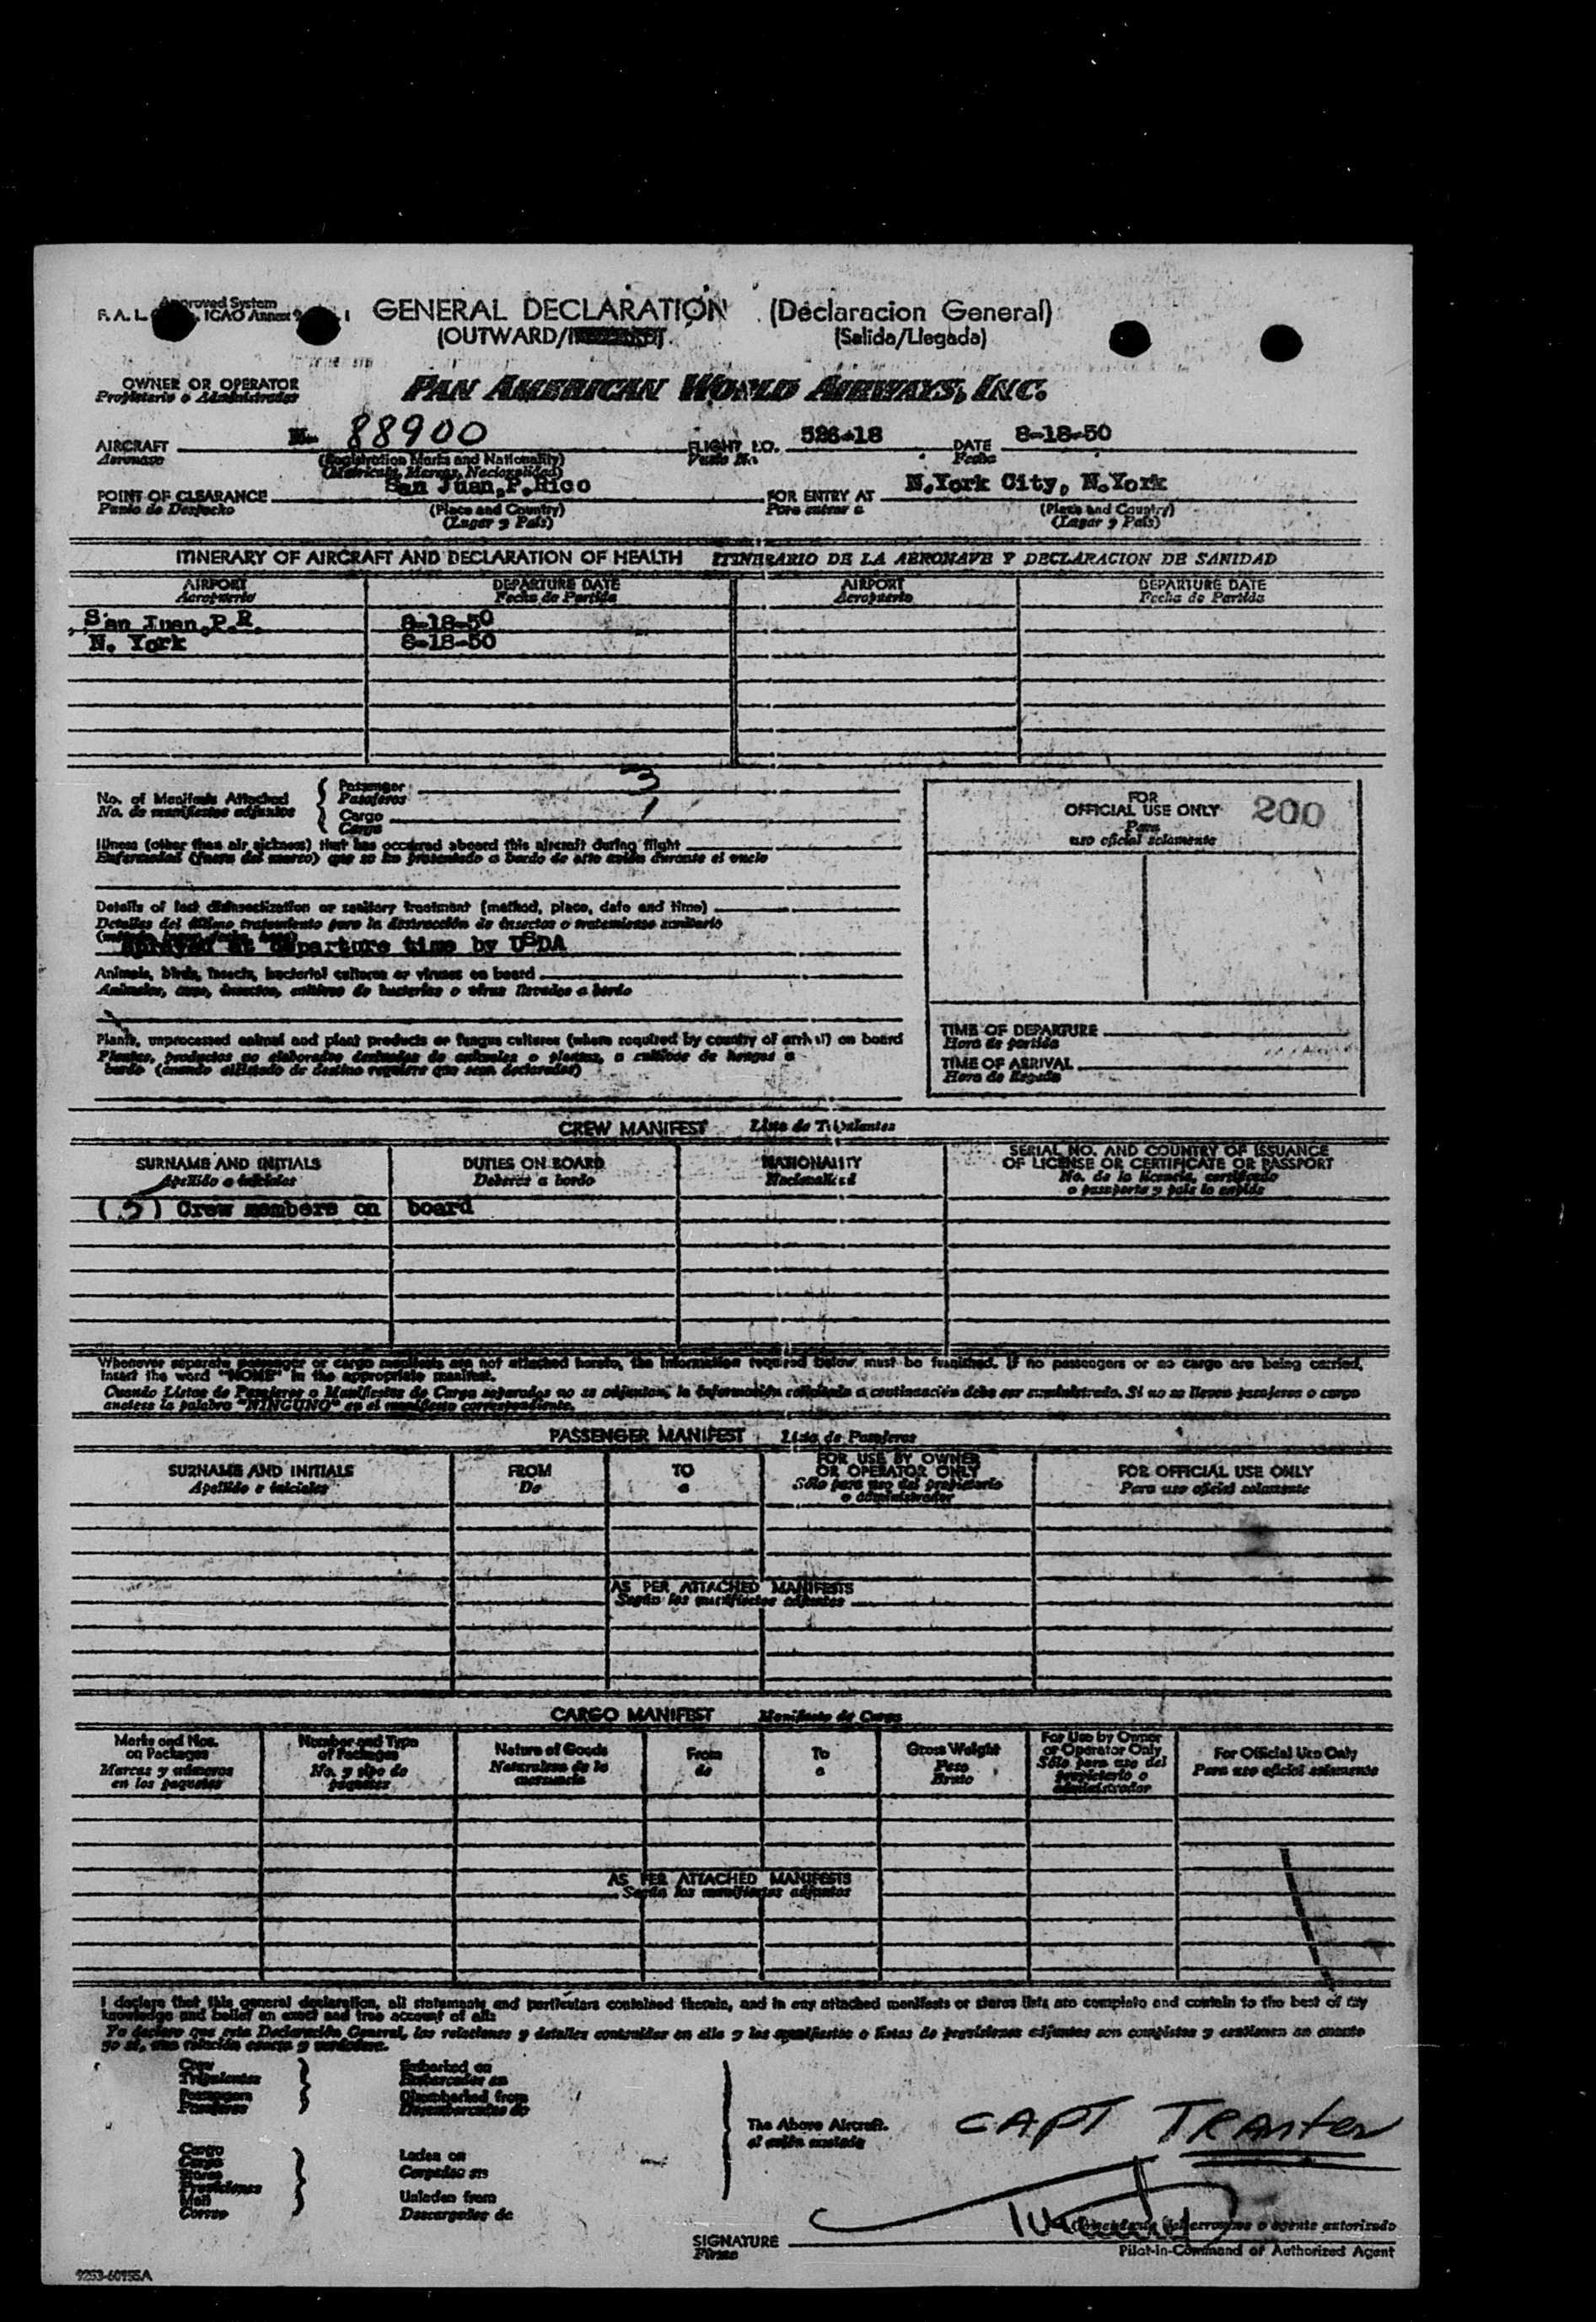 Approved System
F. A. L. ICAO Annex 9
GENERAL DECLARATION (Declaracion General)
(OUTWARD/ (Salida/Llegada)
OWNER OR OPERATOR
Propietario o Administrador
PAN AMERICAN WORLD AIRWAYS, INC.
AIRCRAFT N- 88900 FLIGHT NO. 526-18 DATE 8-18-50
Aeronave (Registration Marks and Nationality) Vuelo No. Fecha
(Matricula, Marcas, Nacionalidad)
POINT OF CLEARANCE San Juan,P.Rico FOR ENTRY AT N.York City, N.York
Punto de Despacho (Place and Country) Para entrar a (Place and Country)
(Lugar y País) (Lugar y País)
ITINERARY OF AIRCRAFT AND DECLARATION OF HEALTH ITINERARIO DE LA AERONAVE Y DECLARACION DE SANIDAD
AIRPORT DEPARTURE DATE AIRPORT DEPARTURE DATE
Aeropuerto Fecha de Partida Aeropuerto Fecha de Partida
San Juan,P.R. 8-18-50
N. York 8-18-50
No. of Manifests Attached
No. de manifiestos adjuntos
Passenger 3
Pasajeros
Cargo 1
Carga
FOR
OFFICIAL USE ONLY 200
Para
uso oficial solamente
Illness (other than air sickness) that has occurred aboard this aircraft during flight
Enfermedad (fuera del mareo) que se ha presentado a bordo de este avión durante el vuelo
Details of last disinsectization or sanitary treatment (method, place, date and time)
Detalles del último tratamiento para la destrucción de insectos o tratamiento sanitario
Sprayed at departure time by USDA
Animals, birds, insects, bacterial cultures or viruses on board
Animales, aves, insectos, cultivos de bacterias o virus llevados a bordo
Plants, unprocessed animal and plant products or fungus cultures (where required by country of arrival) on board
Plantas, productos no elaborados derivados de animales o plantas, o cultivos de hongos a
bordo (cuando el Estado de destino requiere que sean declarados)
TIME OF DEPARTURE
Hora de partida
TIME OF ARRIVAL
Hora de llegada
CREW MANIFEST Lista de Tripulantes
SURNAME AND INITIALS DUTIES ON BOARD NATIONALITY SERIAL NO. AND COUNTRY OF ISSUANCE
OF LICENSE OR CERTIFICATE OR PASSPORT
Apellido e iniciales Deberes a bordo Nacionalidad No. de la licencia, certificado
o pasaporte y país lo expide
(5) Crew members on board
Whenever separate passenger or cargo manifests are not attached hereto, the information required below must be furnished. If no passengers or no cargo are being carried,
insert the word "NONE" in the appropriate manifest.
Cuando Listas de Pasajeros o Manifiestos de Carga separados no se adjuntan, la información solicitada a continuación debe ser suministrada. Si no se llevan pasajeros o carga
anotese la palabra "NINGUNO" en el manifiesto correspondiente.
PASSENGER MANIFEST Lista de Pasajeros
SURNAME AND INITIALS FROM TO FOR USE BY OWNER OR OPERATOR ONLY FOR OFFICIAL USE ONLY
Apellido e iniciales De a Sólo para uso del propietario o administrador Para uso oficial solamente
AS PER ATTACHED MANIFESTS
Según los manifiestos adjuntos
CARGO MANIFEST Manifiesto de Carga
Marks and Nos. on Packages Number and Type of Packages Nature of Goods From To Gross Weight For Use by Owner or Operator Only For Official Use Only
Marcas y números en los paquetes No. y tipo de paquetes Naturaleza de la mercancia de a Peso Bruto Sólo para uso del propietario o administrador Para uso oficial solamente
AS PER ATTACHED MANIFESTS
Según los manifiestos adjuntos
I declare that this general declaration, all statements and particulars contained therein, and in any attached manifests or stores lists are complete and contain to the best of my
knowledge and belief an exact and true account of all:
Yo declaro que esta Declaración General, las relaciones y detalles contenidos en ella y los manifiestos o listas de provisiones adjuntos son completos y contienen en cuanto
yo sé, una relación exacta y verdadera.
Crew Embarked on
Tripulantes Embarcados en
Passengers Disembarked from
Pasajeros Desembarcados de
The Above Aircraft.
el avión
CAPT TRanter
Cargo Laden on
Carga Cargados en
Stores
Provisiones
Mail Unladen from
Correo Descargados de
SIGNATURE
Firma
o agente autorizado
Pilot-in-Command or Authorized Agent
9253-60955A